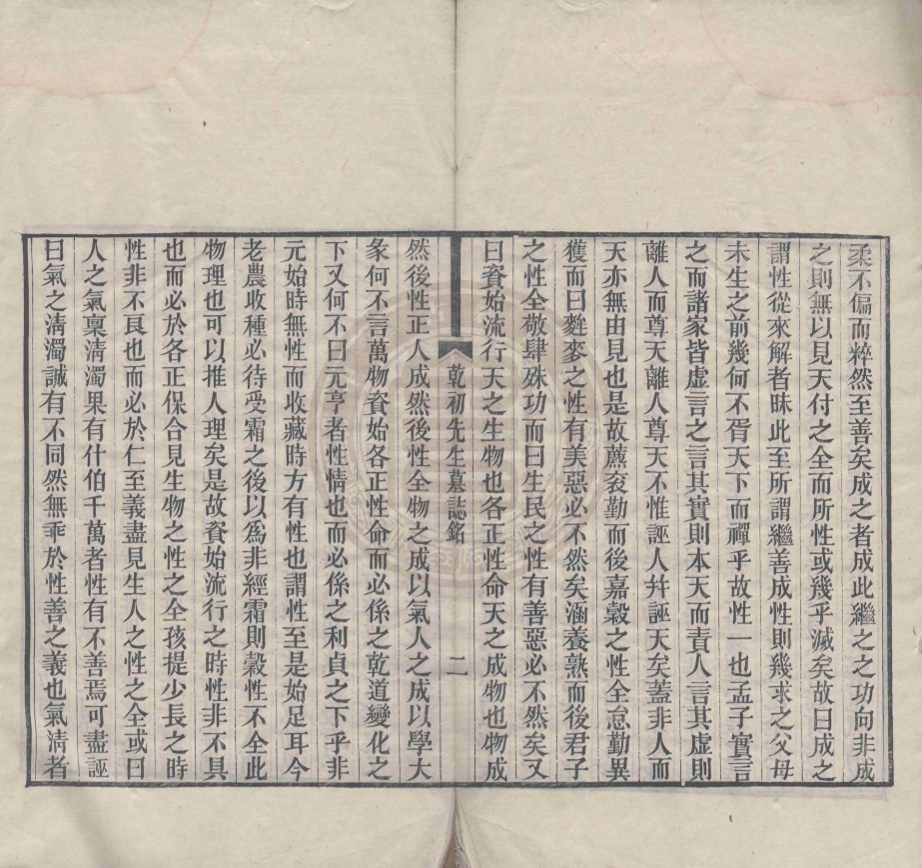 柔不偏而粹然至善矣成之者成此繼之之功向非成
之則無以見天付之全而所性或幾乎滅矣故曰成之
謂性從來解者昧此至所謂繼善成性則幾求之父母
未生之前幾何不胥天下而禪乎故性一也孟子實言
之而諸家皆虛言之言其實則本天而責人言其虛則
離人而尊天離人尊天不惟誣人幷誣天矣蓋非人而
天亦無由見也是故藨衮勤而後嘉穀之性全怠勤異
獲而曰麰麥之性有美惡必不然矣涵養熟而後君子
之性全敬肆殊功而曰生民之性有善惡必不然矣又
曰資始流行天之生物也各正性命天之成物也物成
乾初先生墓誌銘
二
然後性正人成然後性全物之成以氣人之成以學大
彖何不言萬物資始各正性命而必係之乾道變化之
下又何不曰元亨者性情也而必係之利貞之下乎非
元始時無性而收藏時方有性也謂性至是始足耳今
老農收種必待受霜之後以爲非經霜則穀性不全此
物理也可以推人理矣是故資始流行之時性非不具
也而必於各正保合見生物之性之全孩提少長之時
性非不良也而必於仁至義盡見生人之性之全或曰
人之氣稟清濁果有什伯千萬者性有不善焉可盡誣
曰氣之清濁誠有不同然無乖於性善之義也氣清者